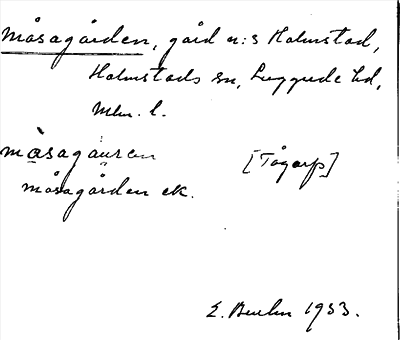 Måsagården, gård n:s Holmstad,
Holmstads sn, Luggude hd,
Mlm. l.
måsagåuren [Tågarp]
måsagården ek.
E. Beulin 1933.